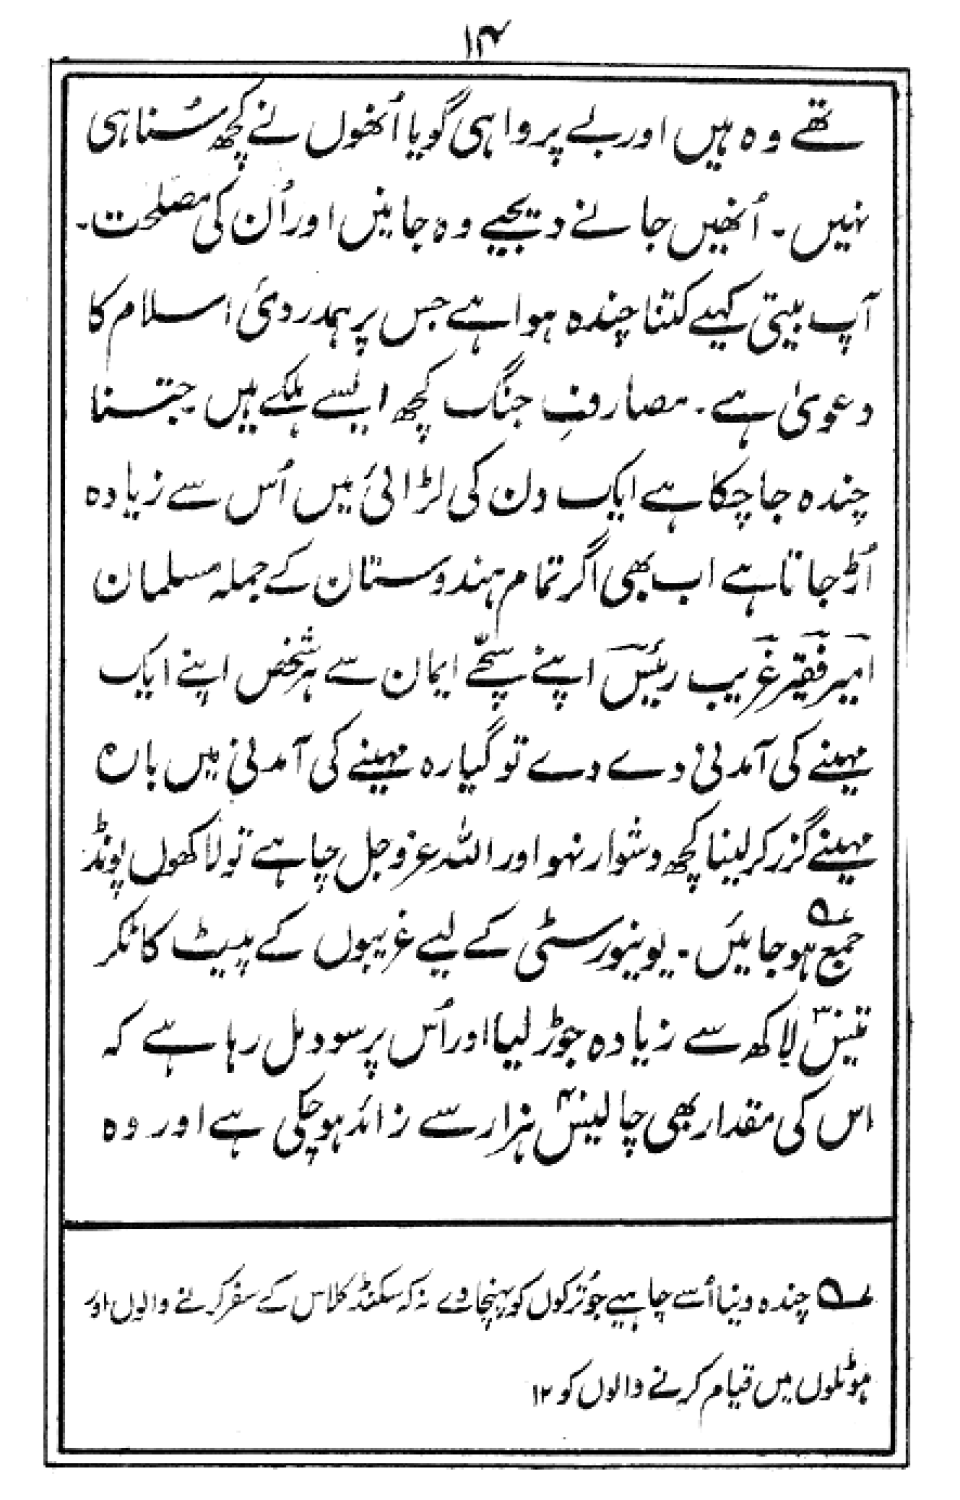 ۱۴
تھے وہ ہیں اور بے پرواہی گویا اُنھوں نے کچھ سُنا ہی
نہیں۔ اُنھیں جانے دیجیے وہ جانیں اور اُن کی مصلحت۔
آپ بیتی کہیے کتنا چندہ ہوا ہے جس پر ہمدردیٔ اسلام کا
دعویٰ ہے۔ مصارفِ جنگ کچھ ایسے ہلکے ہیں جتنا
چندہ جا چکا ہے ایک دن کی لڑائی میں اُس سے زیادہ
اُڑ جاتا ہے اب بھی اگر تمام ہندوستان کے جملہ مسلمان
امیر فقیر غریب رئیس اپنے سچّے ایمان سے ہر شخص اپنے ایک
مہینے کی آمدنی دے دے تو گیارہ مہینے کی آمدنی میں بارہ
مہینے گزر کر لینا کچھ دشوار نہو اور اللہ عزوجل چاہے تو لاکھوں پونڈ
جمع ہو جائیں۔ یونیورسٹی کے لیے غریبوں کے پیٹ کاٹکر
تیس۳۰ لاکھ سے زیادہ جوڑ لیا اور اُس پر سود مل رہا ہے کہ
اس کی مقدار بھی چالیس۴۰ ہزار سے زائد ہو چکی ہے اور وہ
چندہ دینا اُسے چاہیے جو تُرکوں کو پہنچا دے نہ کہ سکنڈ کلاس کے سفر کرنے والوں اور
ہوٹلوں میں قیام کرنے والوں کو ۱۲